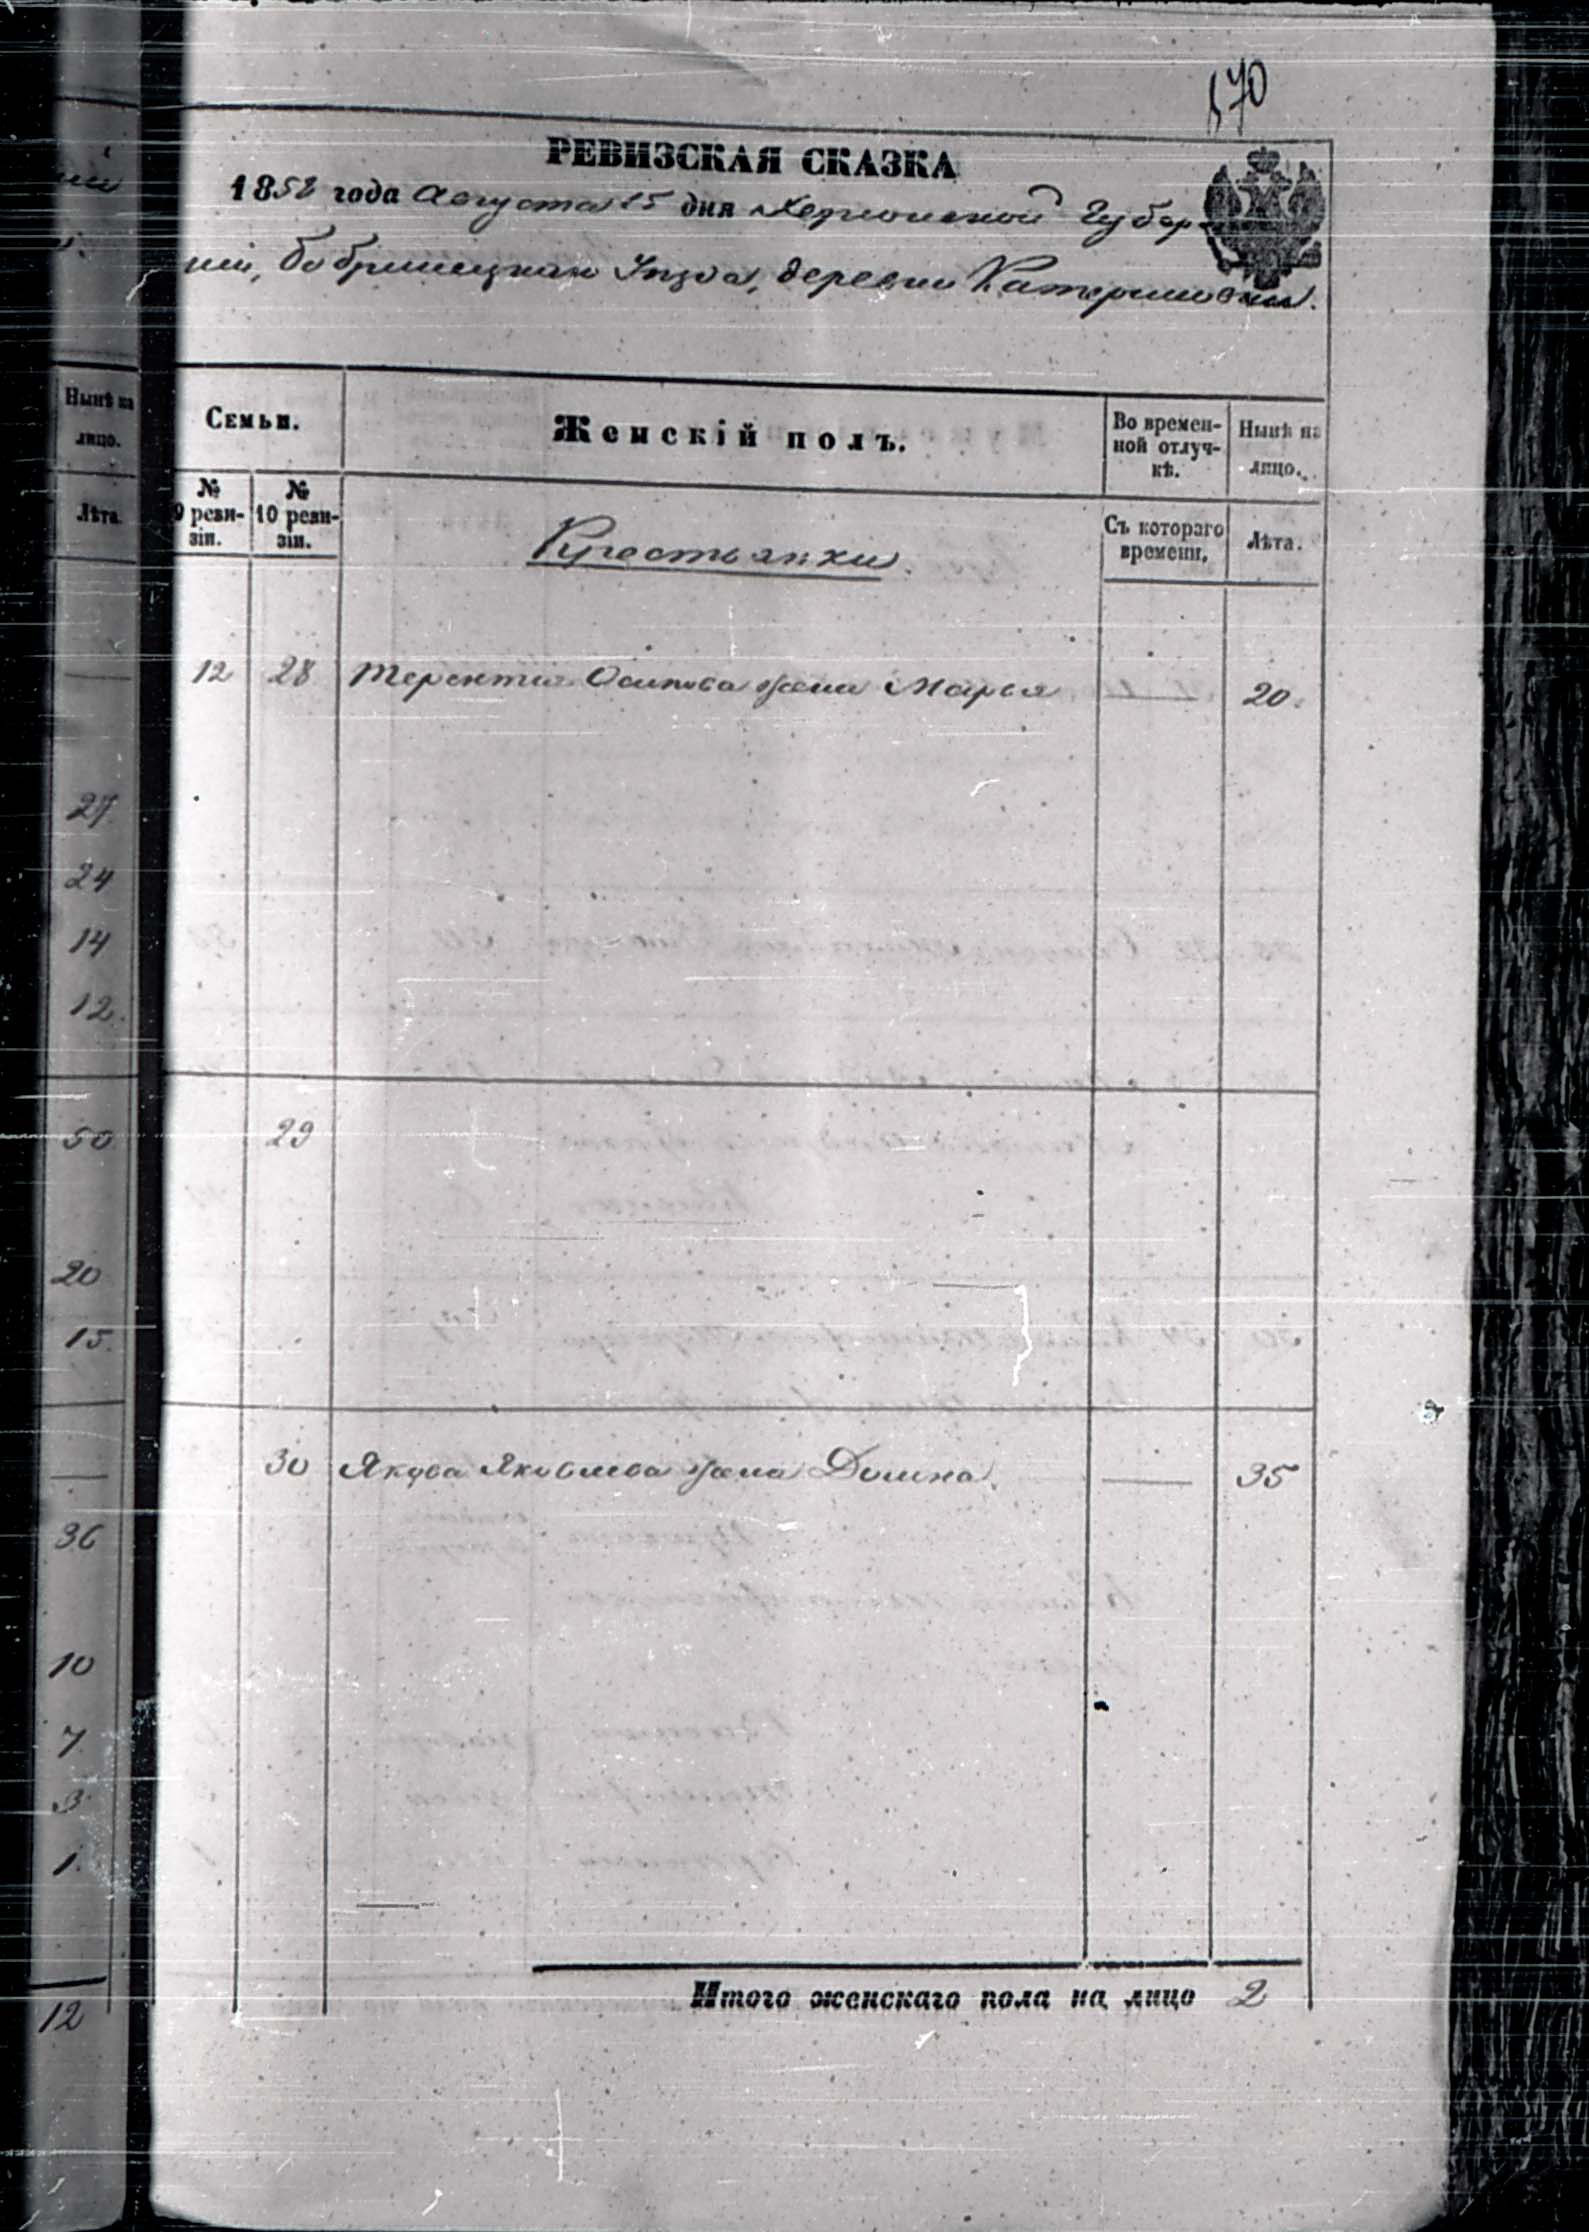 570
РЕВИЗСКАЯ СКАЗКА
1858 года Августа 15 дня Херсонской Губер-
нии, Бобринецкаго Уезда, деревни Катериновки.
Нынѣ на
лицо.
Лѣта.
27
24
14
12.
50
20
15.
36
10
7.
3.
1.
12
Семьи.
Женскій полъ.
Во времен-
ной отлуч-
кѣ.
Нынѣ на
лицо.
№
9 реви-
зіи.
№
10 реви-
зіи.
Крестьянки.
Съ котораго
времени.
Лѣта.
12 28 Терентия Осипова жена Марья — 20.
29
30 Якова Яковлева жена Домна. — 35
Итого женскаго пола на лицо 2